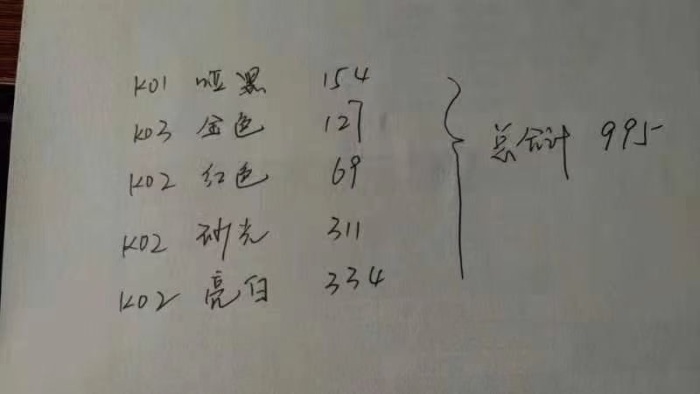 K01 哑黑 154
K03 金色 127
K02 红色 69
K02 砂光 311
K02 亮白 334
总合计 995